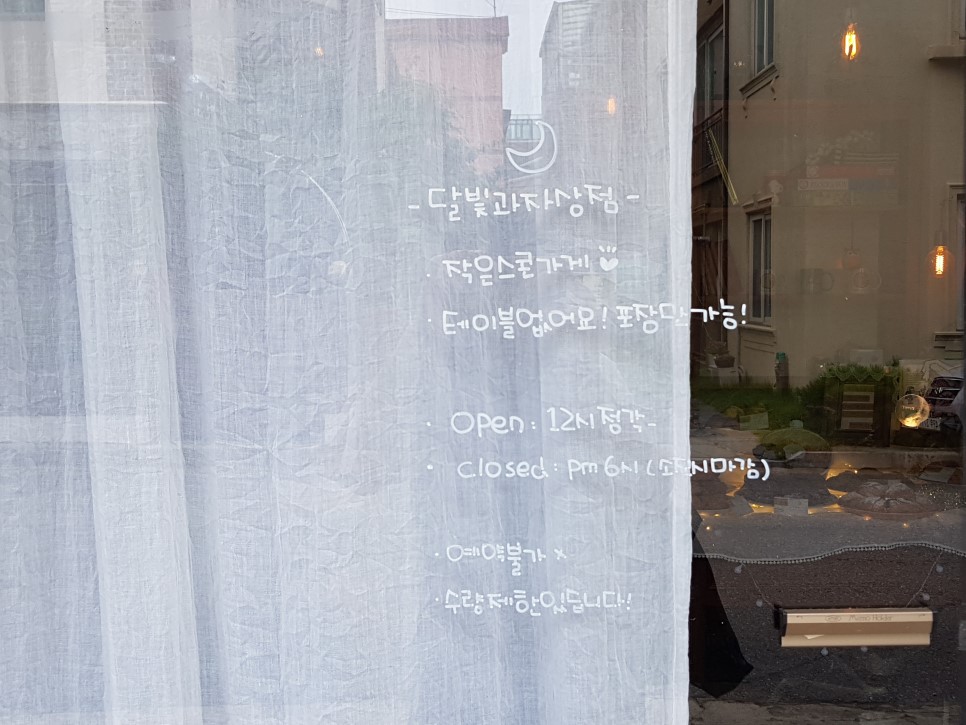 - 달빛과자상점 -
· 작은스콘가게
· 테이블없어요! 포장만가능!
· open: 12시정각-
· closed: pm 6시 (소진시마감)
· 예약불가 x
· 수량제한있습니다!